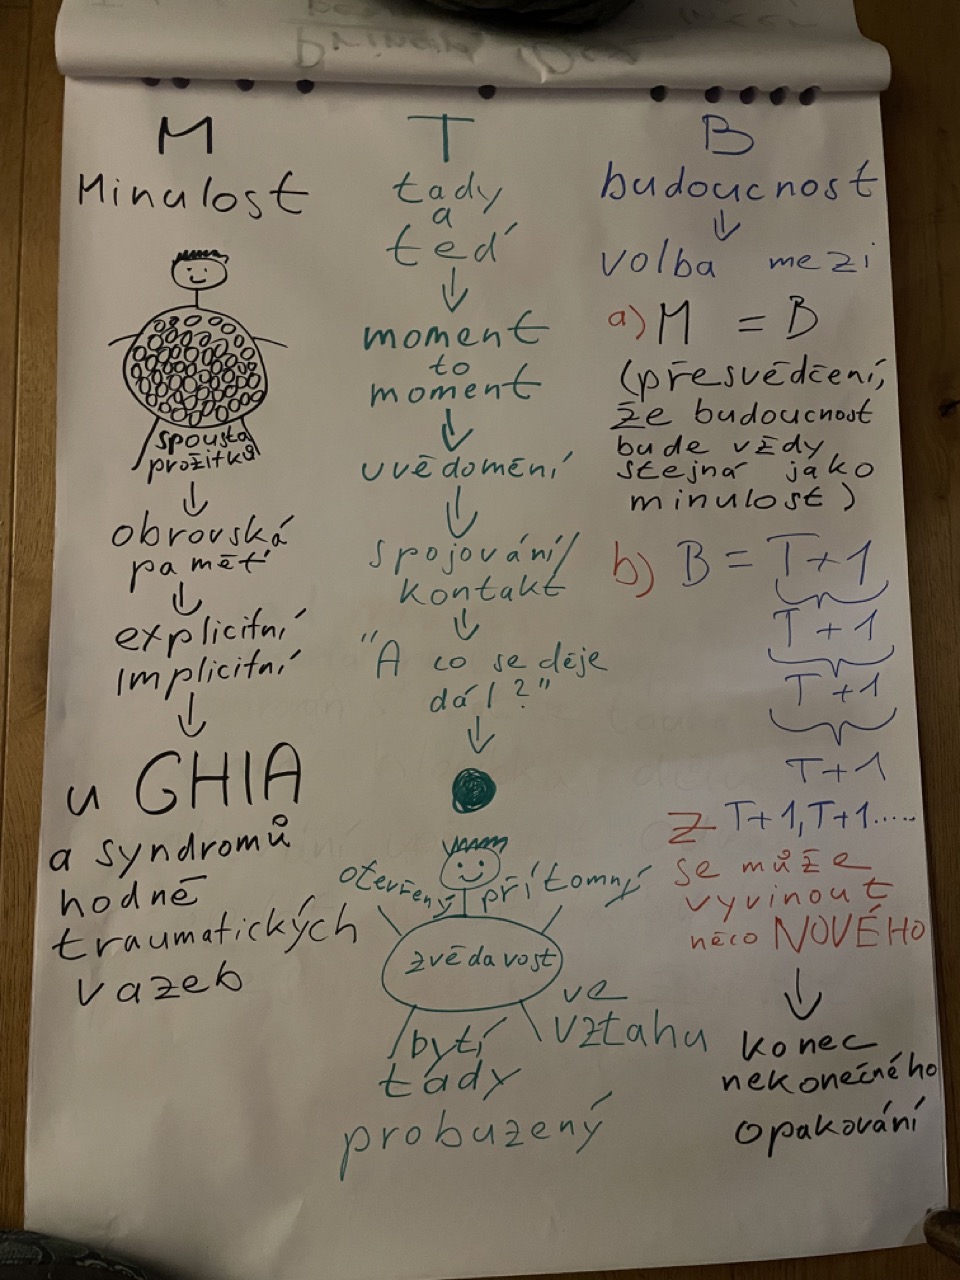 M
Minulost
spousta
prožitků
↓
obrovská
paměť
↓
explicitní
implicitní
↓
u GHIA
a syndromů
hodně
traumatických
vazeb
T
tady
a
teď
↓
moment
to
moment
↓
uvědomění
↓
spojování/
kontakt
↓
"A co se děje
dál?"
↓
otevřený přítomný
zvědavost
ve
vztahu
bytí
tady
probuzený
B
budoucnost
↓
volba mezi
a) M = B
(přesvědčení,
že budoucnost
bude vždy
stejná jako
minulost)
b) B = T+1
T+1
T+1
T+1
z T+1, T+1.....
se může
vyvinout
něco NOVÉHO
↓
konec
nekonečného
opakování